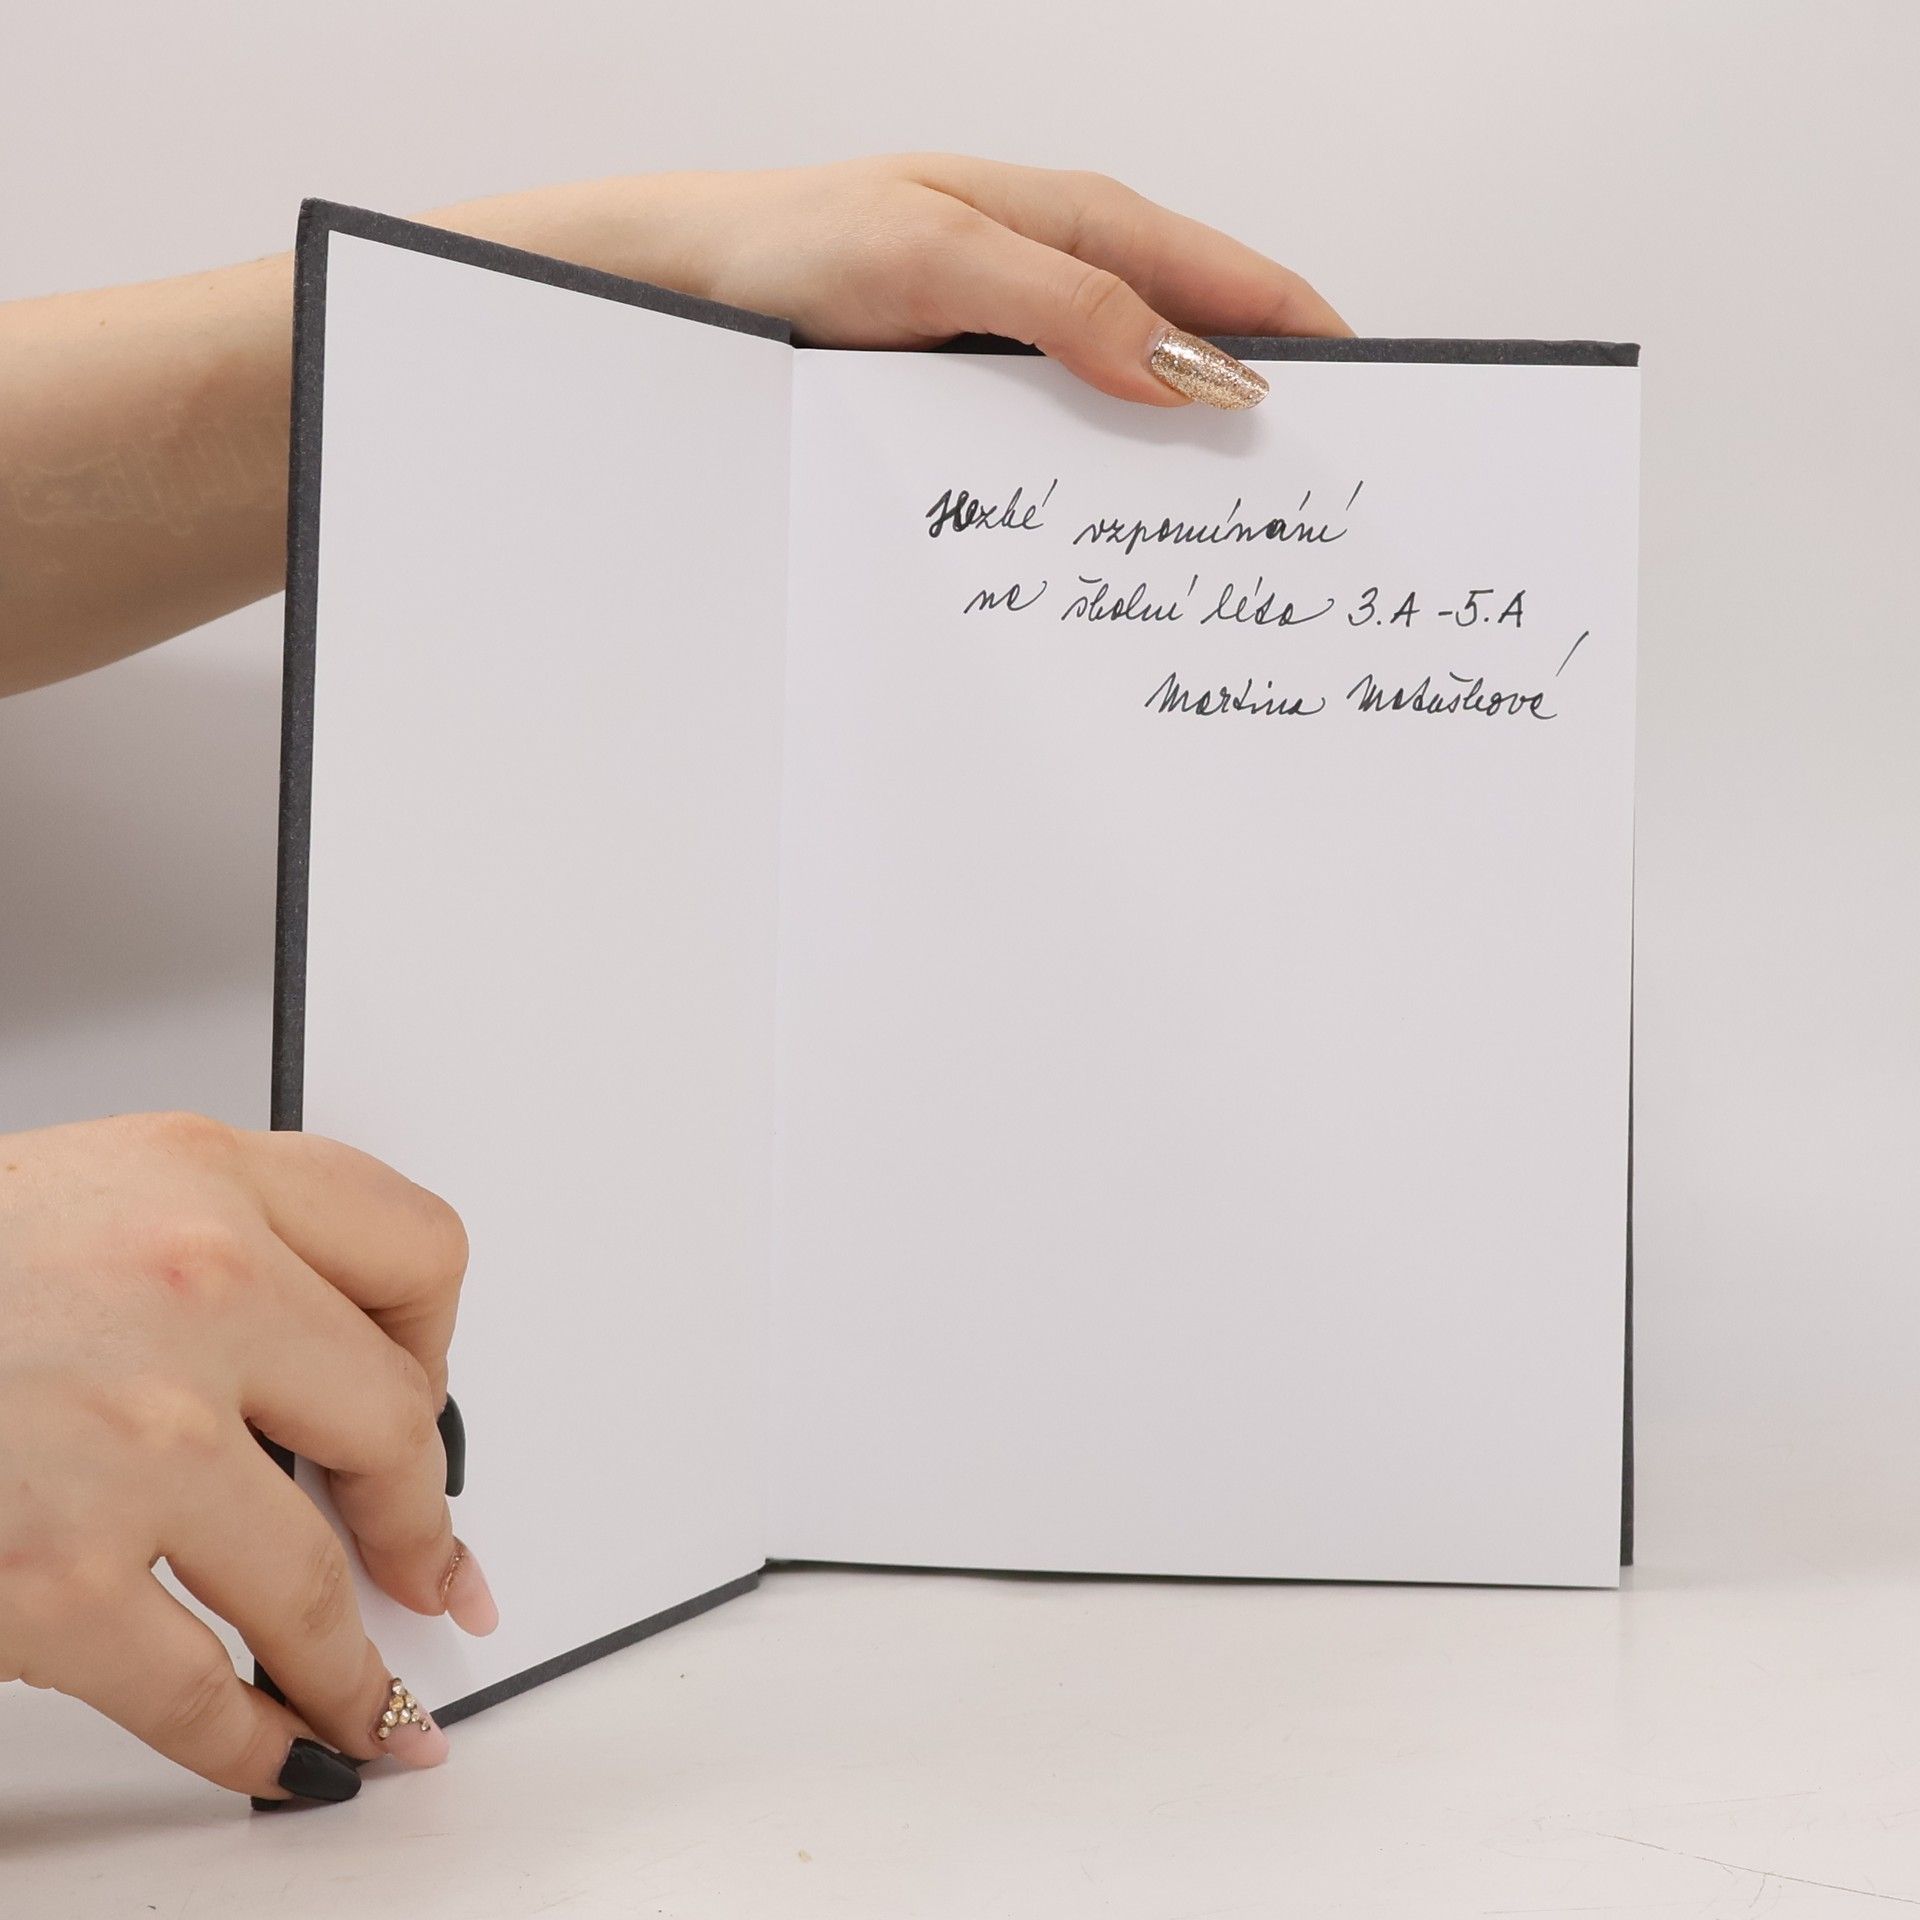 Hezké vzpomínání
na školní léta 3.A - 5.A
Martina Matušková